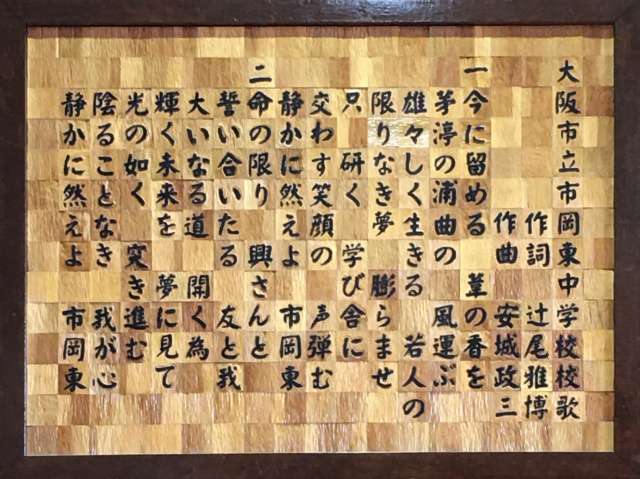 大阪市立市岡東中学校校歌
作詞 辻尾雅博
作曲 安城政三
一 今に留める 葦の香を
茅渟の浦曲の 風運ぶ
雄々しく生きる 若人の
限りなき夢 膨らませ
只 研く 学び舎に
交わす笑顔の 声弾む
静かに然えよ 市岡東
二 命の限り 興さんと
誓い合いたる 友と我
大いなる道 開く為
輝く未来を 夢に見て
光の如く 突き進む
陰ることなき 我が心
静かに然えよ 市岡東